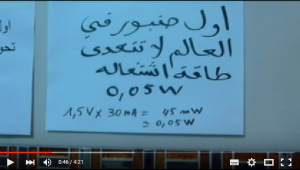 اول صنبور في
العالم لا تتعدى
طاقة اشتغاله
0,05W
1,5V x 30mA = 45mW
≃ 0,05W
0:46 / 4:21